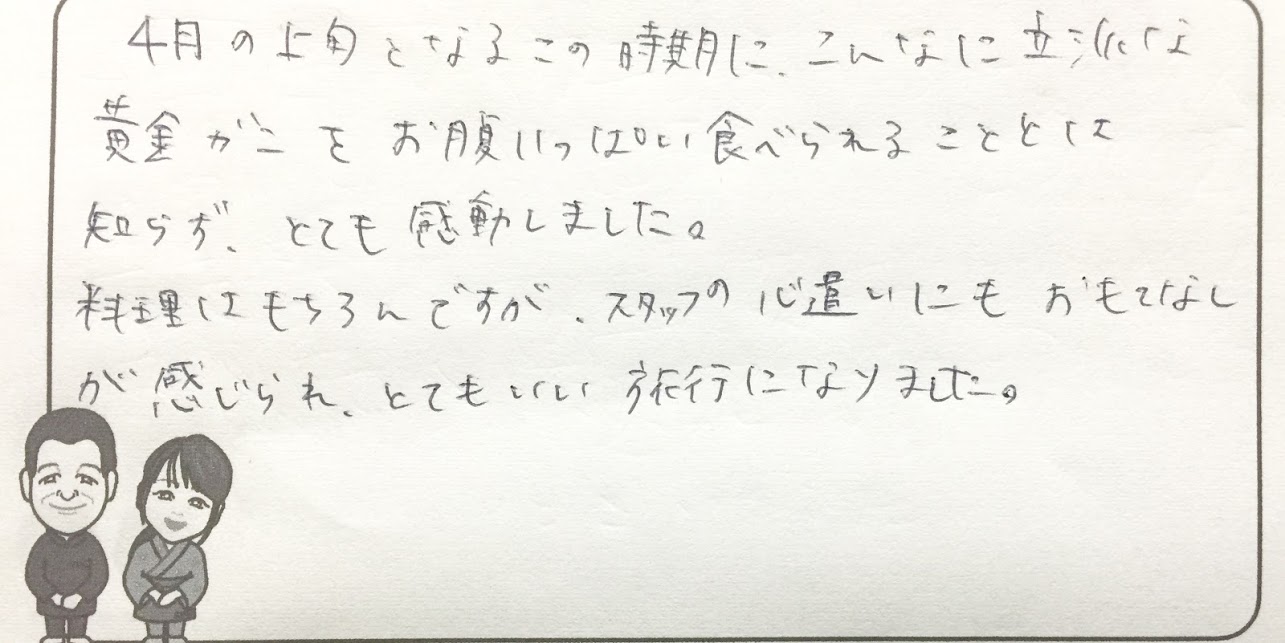 4月の上旬となるこの時期に、こんなに立派な
黄金がにをお腹いっぱい食べられることとは
知らず、とても感動しました。
料理はもちろんですが、スタッフの心遣いにもおもてなし
が感じられ、とてもいい旅行になりました。